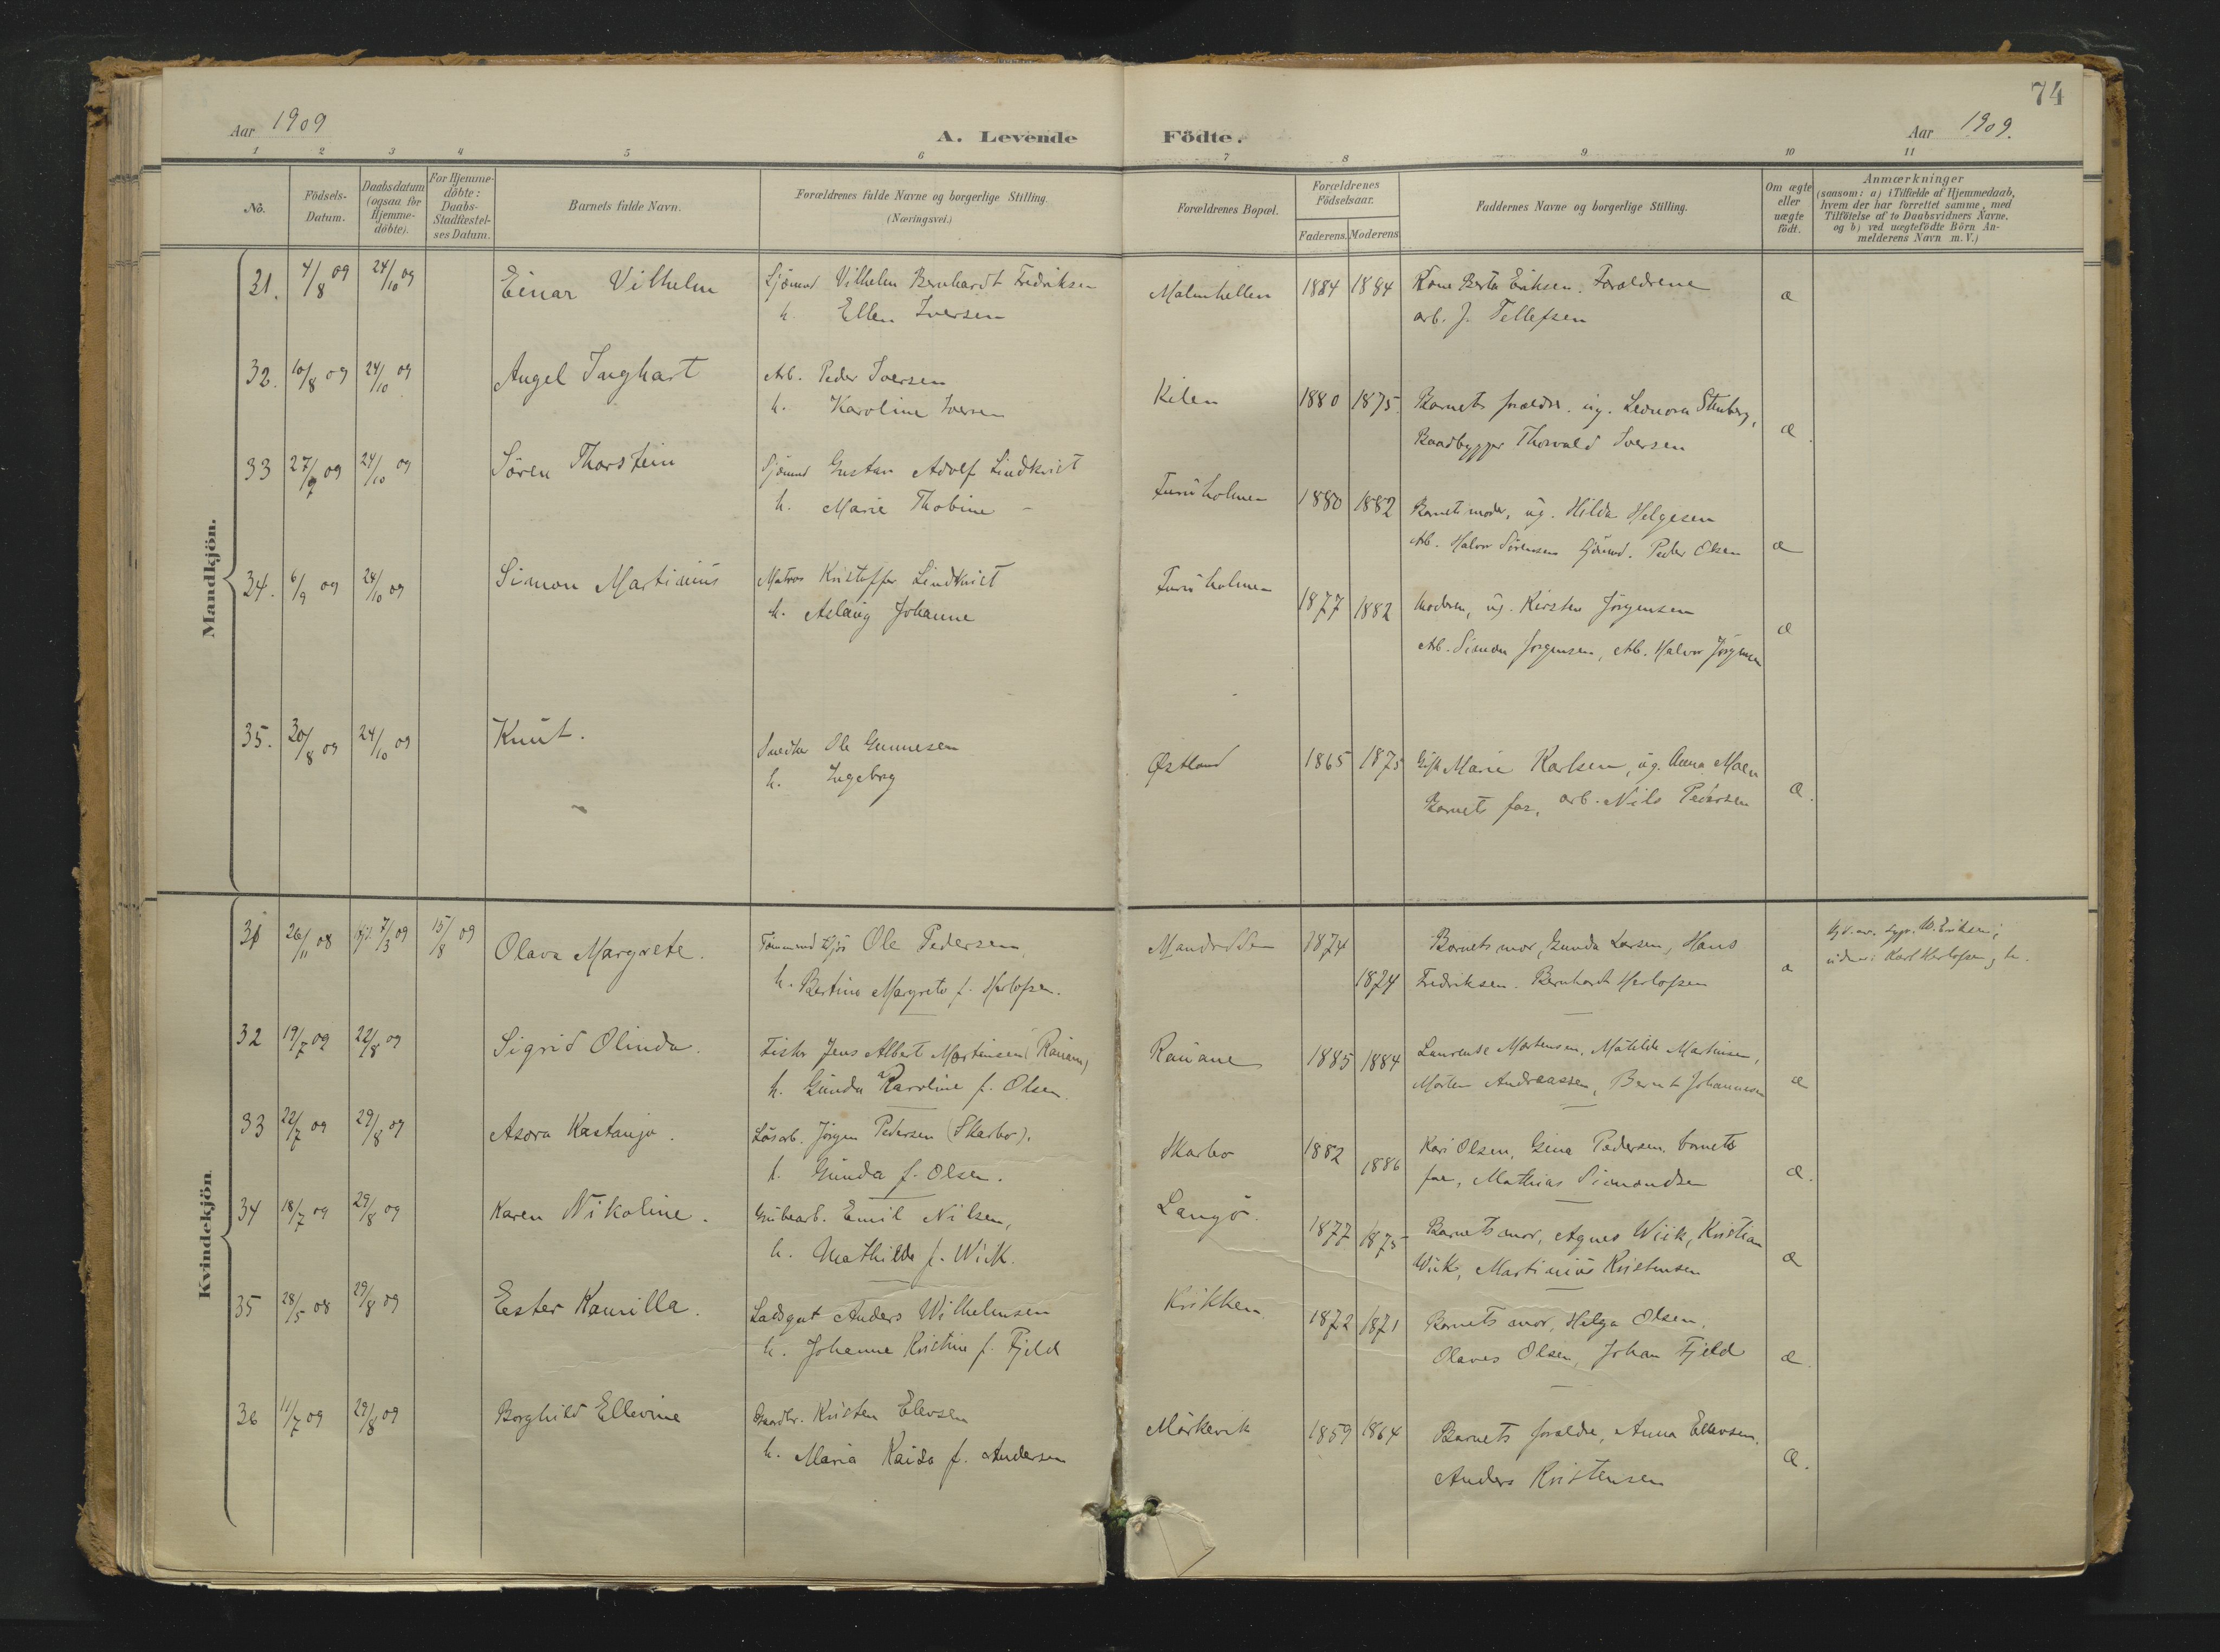 74
Aar 1909
A. Levende Födte.
Aar 1909.
1 2 3 4 5 6 7 8 9 10 11
No.
Födsels-
Datum.
Daabsdatum
(ogsaa for
Hjemme-
döbte).
For Hjemme-
döbte:
Daabs-
Stadfæstel-
ses Datum.
Barnets fulde Navn.
Forældrenes fulde Navne og borgerlige Stilling.
(Næringsvei.)
Forældrenes Bopæl.
Forældrenes
Födselsaar.
Faderens. Moderens
Faddernes Navne og borgerlige Stilling.
Om ægte
eller
uægte
födt.
Anmærkninger
(saasom: a) i Tilfælde af Hjemmedaab,
hvem der har forrettet samme, med
Tilföielse af to Daabsvidners Navne.
og b) ved uægtefödte Börn An-
melderens Navn m. V.)
Mandkjön.
31. 4/8 09 24/10 09 Einar Vilhelm Sjömd Vilhelm Bernhardt Fredriksen Malmhellen 1884 1884 Kone Berta Eriksen. Forældrene æ
h. Ellen Iversen arb. J. Tellefsen
32. 10/8 09 24/10 09 Angel Inghart Arb. Peder Iversen Kilen 1880 1875. Barnets forældre. ug. Leonora Stenberg, æ.
h. Karoline Iversen Baadbygger Thorvald Iversen
33 27/9 09 24/10 09 Sören Thorstein Sjömd Gustav Adolf Lindkvist Furuholmen 1880 1882 Barnets moder, ug. Hilda Helgesen
h. Marie Thobine - Ab. Halvor Sörensen Sjömd. Peder Olsen æ
34. 6/9 09 24/10 09 Simon Martinius Matros Kristoffer Lindkvist Furuholmen 1877 1882 Moderen, ug. Kirsten Jörgensen æ
h. Aslaug Johanne Ab. Simon Jörgensen, Ab. Halvor Jörgensen
35. 20/8 09 24/10 09 Knut. Snedker Ole Gunnesen Østland 1865 1875 Gift Marie Karlsen, ug. Anna Moen æ.
h. Ingeborg Barnets far, arb. Nils Pedersen
Kvindekjön
31 26/11 08 Hjd. 7/3 09 15/8 09 Olava Margrete. Tömmermd Ole Pedersen, 1874 Barnets mor, Gunda Larsen, Hans æ
h. Bertine Margrete f. Herlofsen. 1874 Fredriksen. Bernhardt Herlofsen
32 19/7 09 22/8 09 Sigrid Olinda. Fisker Jens Albert Mortensen (Rauane) Rauane 1885 1884 Laurense Mortensen, Matilde Martinsen,
h. Gunda Karoline f. Olsen. Morten Andreassen, Bernt Johannesen æ
33 22/7 09 29/8 09 Asora Kastanja. Lösarb. Jörgen Pedersen (Skarbo). Skarbo 1882 1886 Kari Olsen, Gina Pedersen, barnets
h. Gunda f. Olsen. far, Mathias Simondsen æ.
34 18/7 09 29/8 09 Karen Nikoline. Grubearb. Emil Nilsen, Langö. 1877 1875 Barnets mor, Agnes Wiik, Kristian
h. Mathilde f. Wiik. Wiik, Martinius Kristensen æ
35 28/5 08 29/8 09 Ester Kamilla. Ladsgut Anders Wilhelmsen Krikken 1872 1871 Barnets mor, Helga Olsen,
h. Johanne Kristine f. Fjeld Olaves Olsen, Johan Fjeld æ.
36 11/7 09 29/8 09 Borghild Ellevine Gaardbr. Kristen Elevsen Mörkevik 1859 1864 Barnets forældre, Anna Ellevsen,
h. Maria Kaisa f. Andersen Anders Kristensen æ.